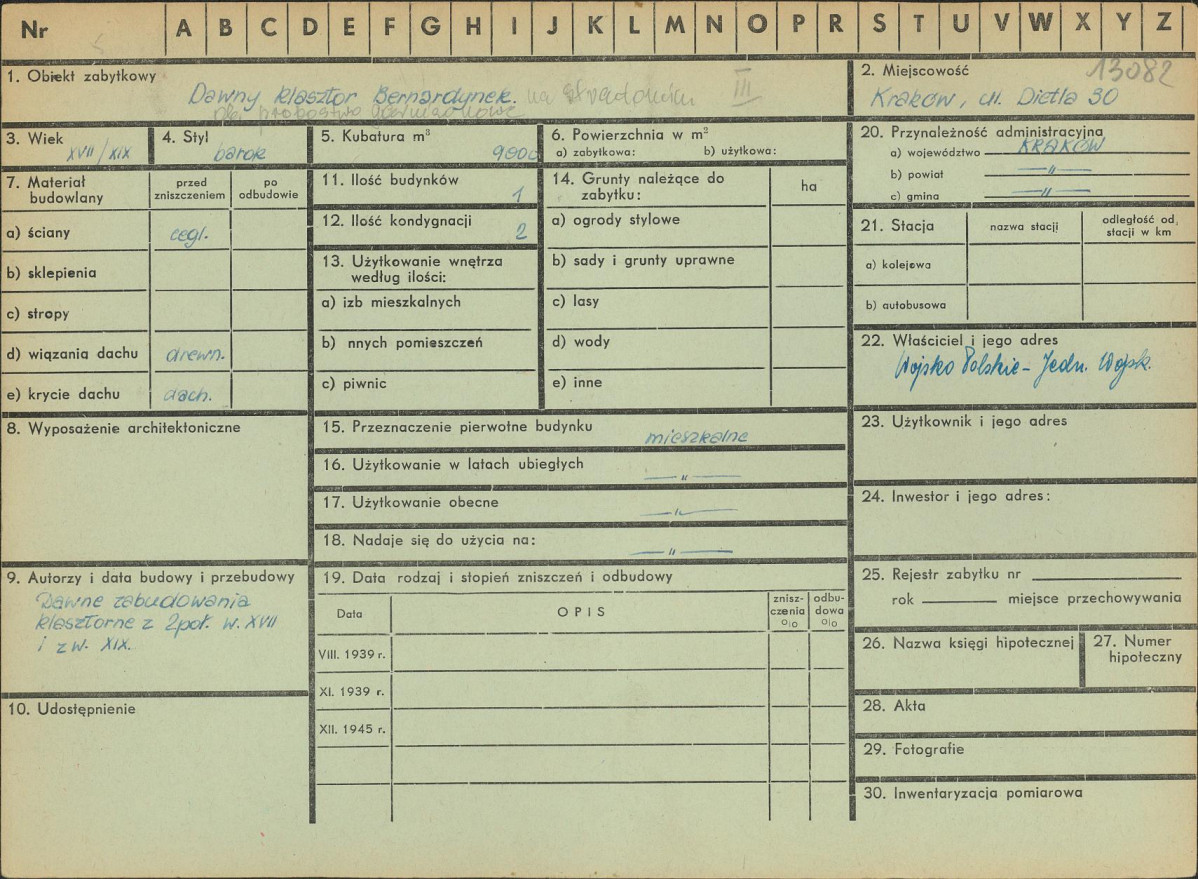 Nr A B C D E F G H I J K L M N O P R S T U V W X Y Z
1. Obiekt zabytkowy
Dawny klasztor Bernardynek. na Stradomiu III
ob. probostwo
2. Miejscowość 13082
Kraków, ul. Dietla 30
3. Wiek
XVII/XIX
4. Styl
barok
5. Kubatura m³
9000
6. Powierzchnia w m²
a) zabytkowa: b) użytkowa:
7. Materiał budowlany
przed zniszczeniem
po odbudowie
a) ściany cegl.
b) sklepienia
c) stropy
d) wiązania dachu drewn.
e) krycie dachu dach.
8. Wyposażenie architektoniczne
9. Autorzy i data budowy i przebudowy
Dawne zabudowania
klasztorne z 2 poł. w. XVII
i z w. XIX.
10. Udostępnienie
11. Ilość budynków
1
12. Ilość kondygnacji
2
13. Użytkowanie wnętrza
według ilości:
a) izb mieszkalnych
b) nnych pomieszczeń
c) piwnic
14. Grunty należące do
zabytku:
ha
a) ogrody stylowe
b) sady i grunty uprawne
c) lasy
d) wody
e) inne
15. Przeznaczenie pierwotne budynku
mieszkalne
16. Użytkowanie w latach ubiegłych
—„—
17. Użytkowanie obecne
—„—
18. Nadaje się do użycia na:
—„—
19. Data rodzaj i stopień zniszczeń i odbudowy
Data
OPIS
znisz-
czenia
%
odbu-
dowa
%
VIII. 1939 r.
XI. 1939 r.
XII. 1945 r.
20. Przynależność administracyjna
a) województwo KRAKÓW
b) powiat —„—
c) gmina —„—
21. Stacja
nazwa stacji
odległość od
stacji w km
a) kolejowa
b) autobusowa
22. Właściciel i jego adres
Wojsko Polskie - Jedn. Wojsk.
23. Użytkownik i jego adres
24. Inwestor i jego adres:
25. Rejestr zabytku nr
rok miejsce przechowywania
26. Nazwa księgi hipotecznej
27. Numer
hipoteczny
28. Akta
29. Fotografie
30. Inwentaryzacja pomiarowa